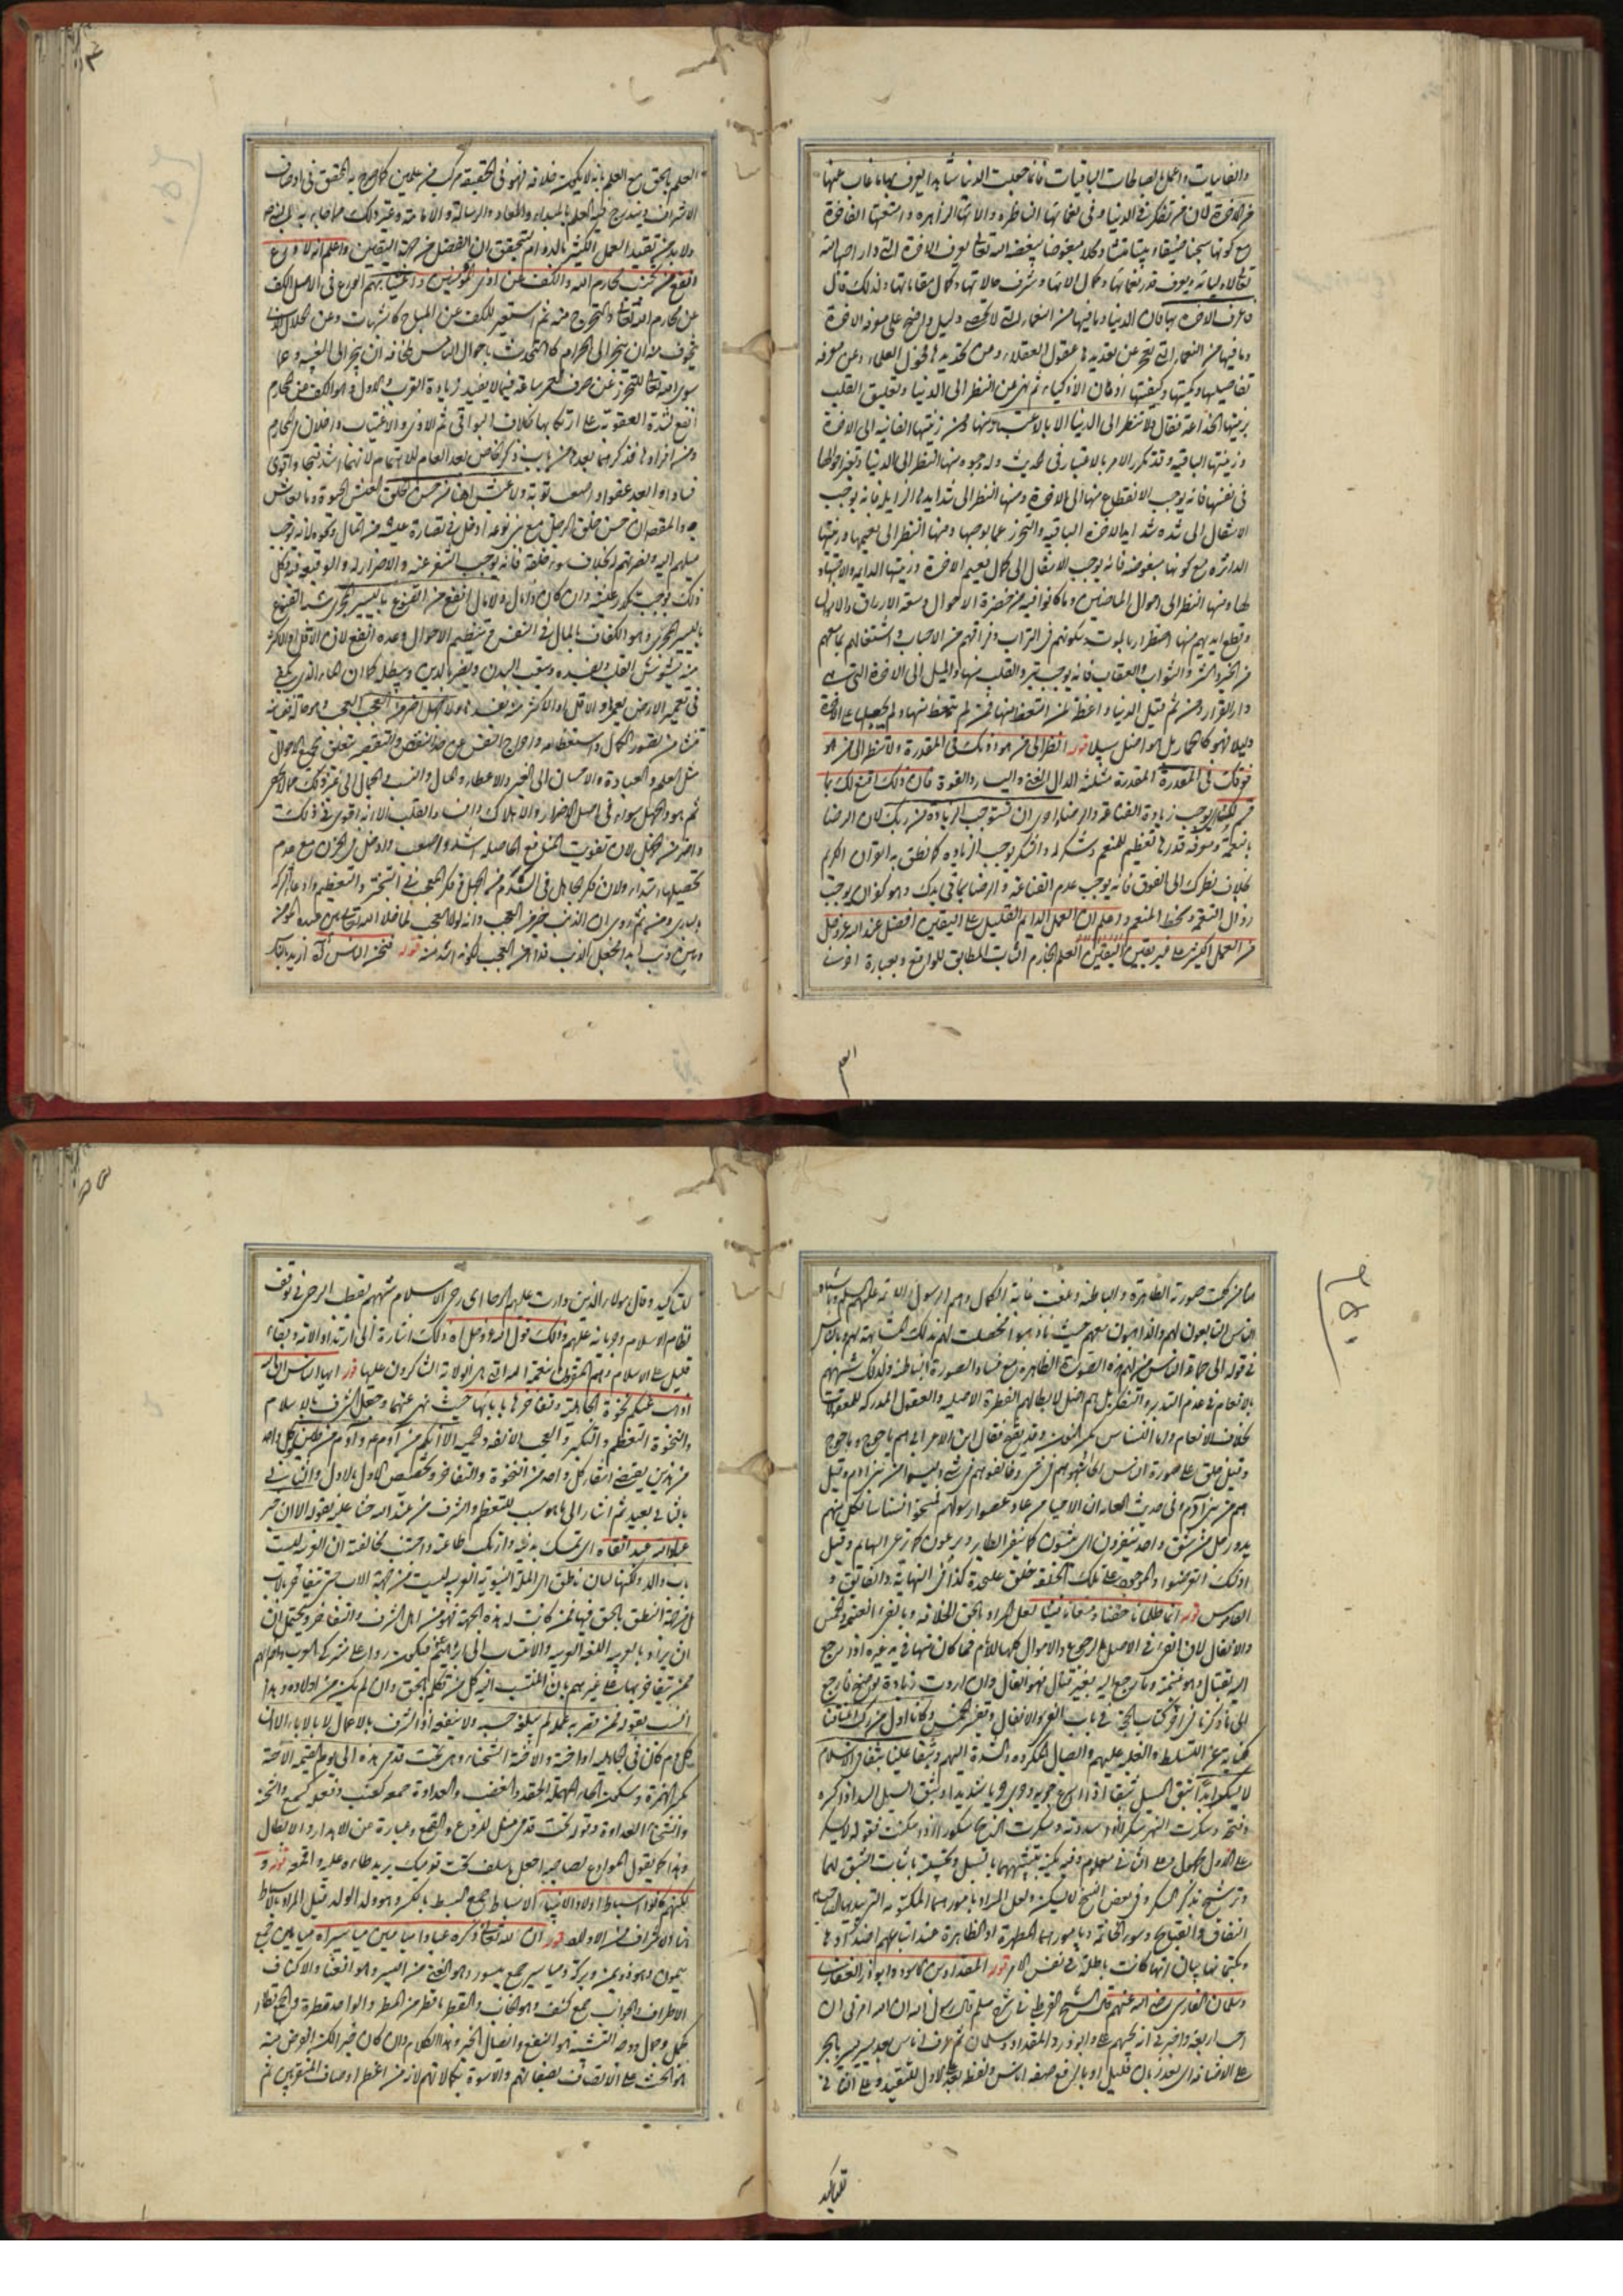 والفانيات واعمل بالصالحات الباقيات فانما جعلت الدنيا شاهدا ليعرف بها ما غاب عنها
من الاخرة لان من تفكر في الدنيا وفي نعمائها الناظرة والائها الزاهرة وامتعتها الفاخرة
مع كونها سجنا ضيقا وبيتا منتنا ومحلا مبغوضا يبغضه الله تعالى يعرف الاخرة التي دار احسانه
تعالى لاوليائه ويعرف قدر نعمائها وكمال الائها وشرف حالاتها وكمال مقاماتها ولذلك قال
فاعرف الاخرة بها فان الدنيا وما فيها من النعماء التي لا تحصى دليل واضح على معرفة الاخرة
وما فيها من النعماء التي تعجز عن تعديدها عقول العقلاء وعن تحديدها فحول العلماء وعن معرفة
تفاصيلها وكميتها وكيفيتها اذهان الاذكياء ثم نهى عن النظر الى الدنيا وتعليق القلب
بزينتها الخداعة فقال ولا تنظر الى الدنيا الا بالاعتبار ومنها ومن زينتها الفانية الى الاخرة
وزينتها الباقية وقد تكرر الامر بالاعتبار في الحديث وله وجوه منها النظر الى الدنيا وتغير احوالها
في نفسها فانه يوجب الانقطاع منها الى الاخرة ومنها النظر الى شدايدها الزايلة فانه يوجب
الانتقال الى شدة شدايد الاخرة الباقية والتحرز عما يوجبها ومنها النظر الى نعيمها وزينتها
الداثرة مع كونها مبغوضة فانه يوجب الانتقال الى كمال نعيم الاخرة وزينتها الدايمة والاجتهاد
لها ومنها النظر الى احوال الماضين وما كانوا فيه من خضرة الاحوال وسعة الارزاق والاموال
وقطع ايديهم منها اضطرارا بالموت وسكونهم في التراب وفراقهم من الاحباب واشتغالهم بما معهم
من الخير والشر والثواب والعقاب فانه يوجب تبرء القلب منها والميل الى الاخرة التي هي
دار القرار ومن ثم قيل الدنيا واعظة لمن اتعظ منها فمن لم يتعظ منها ولم يجعلها على الاخرة
دليلا فهو كالحمار بل هو اضل سبيلا قوله انظر الى من هو دونك في المقدرة ولا تنظر الى من هو
فوقك في المقدرة المقدرة مثلثة الدال الغنى واليسار والقوة فان ذلك اقنع لك بما
قسم لك يوجب زيادة القناعة والرضاء واحرى ان تستوجب الزيادة من ربك لان الرضا
بنعمة ومعرفة قدرها تعظيم للمنعم وشكر له والشكر يوجب الزيادة كما نطق به القران الكريم
بخلاف نظرك الى الفوق فانه يوجب عدم القناعة والرضا بما في يدك وهو كفران يوجب
زوال النعمة وسخط المنعم واعلم ان العمل الدايم القليل على اليقين افضل عند الله عز وجل
من العمل الكثير على غير يقين اليقين العلم الجازم الثابت المطابق للواقع وبعبارة اخرى
العلم
العلم بالحق مع العلم بانه لا يكون خلافه فهو في الحقيقة مركب من علمين كما صرح به المحقق في اوصاف
الاشراف ويندرج فيه العلم بالمبداء والمعاد والرسالة والامامة وغير ذلك مما جاء به النبي ص
ولا بد من تقييد العمل الكثير بالدوام ليتحقق ان الفضل من جهة اليقين واعلم انه لا ورع
انفع من تجنب محارم الله والكف عن اذى المؤمنين واغتيابهم الورع في الاصل الكف
عن محارم الله تعالى والتحرج منه ثم استعير للكف عن المباح كالشبهات وعن الحلال الذي
يتخوف منه ان ينجر الى الحرام كالتحدث باحوال الناس لمخافة ان ينجر الى الغيبة وعما
سوى الله تعالى للتحرز عن صرف العمر ساعة فيما لا يفيد زيادة القرب والاول وهو الكف عن المحارم
انفع لشدة العقوبة على ارتكابها بخلاف البواقي ثم الاذى والاغتياب داخلان في المحارم
ومن افرادها فذكرهما بعدها من باب ذكر الخاص بعد العام للاهتمام لانهما اشد قبحا واقوى
فسادا وابعد عفوا واصعب توبة ولا عيش اهنأ من حسن الخلق العيش الحيوة وما يعاش
به والمقصود ان حسن خلق الرجل مع بني نوعه ادخل في نضارة عيشه من المال ونحوه لانه يوجب
ميلهم اليه ونصرتهم له بخلاف سوء خلقه فانه يوجب التنفر عنه والاضرار له والوقيعة فيه وكل
ذلك يوجب تكدر عيشه وان كان ذا مال ولا مال انفع من القنوع باليسير المجزي شبه القنوع
باليسير المجزي وهو الكفاف بالمال في النفس في تنظيم الاحوال وعده انفع لان الاقل والاكثر
منه يشوش القلب ويفسده ويتعب البدن ويضر بالدين ويبطله كما ان الماء الذي يكفي
في تعمير الارض يعمرها والاقل منه والاكثر منه يفسدها ولا جهل اضر من العجب العجب وهو حالة نفسانية
تنشأ من تصور الكمال واستعظامه واخراج النفس عن حد النقص والتقصير يتعلق بجميع الاحوال
مثل العلم والعبادة والاحسان الى الغير والاعطاء والمال والنسب والجمال الى غير ذلك مما لا يحصى
ثم هو والجهل سواء في اصل الاضرار والاهلاك وافساد القلب الا انه اقوى في ذلك
واضر من الجهل لان تفويت المنافع الحاصلة اشد واصعب وادخل في الحزن مع عدم
تحصيلها ابتداء ولان فكر الجاهل في التندم من الجهل وفكر المعجب في التبختر والتعظم وادعاء الشركة
بالباري ومن ثم روي ان الذنب خير من العجب وانه لولا العجب لما خلا الله تعالى بين عبده المؤمن
وبين ذنب ابدا فجعل الذنب فداء من العجب لكونه اشد منه قوله فنحن الناس كانه اريد بالناس
ها من كملت صورته الظاهرة والباطنة وبلغت غاية الكمال وهم الرسول والائمة عليهم السلم وباشباه
الناس التابعون لهم والذاهبون معهم حيث ذهبوا لحصلت لهم بذلك المشابهة لهم وبالناس
في قوله الى جماعة الناس من لهم هذه الصورة الظاهرة مع فساد الصورة الباطنة ولذلك شبههم
بالانعام في عدم التدبر والتفكر بل هم اضل لابطالهم الفطرة الاصلية والعقول المدركة للمعقولات
بخلاف الانعام واما النسناس بكسر النون وقد يفتح فقال ابن الاعرابي هم ياجوج وماجوج
وقيل خلق على صورة الناس اشبهوهم في شيء وخالفوهم في شيء وليسوا من بني ادم وقيل
هم من بني آدم وفي حديث العامة ان الاحياء من عاد عصوا رسولهم فمسخوا نسناسا لكل منهم
يد ورجل من شق واحد ينقزون اي يثبون كما ينقز الطاير ويرعون كما ترعى البهايم وقيل
اولئك انقرضوا والموجود على تلك الخلقة خلق على حدة كذا في النهاية والفايق و
القاموس قوله انما ظلمانا حقنا ومنعانا فيئنا لعل المراد بالحق الخلافة وبالفيء الغنيمة والخمس
والانفال لان الفيء في الاصل الرجوع والاموال كلها للامام فما كان منها في يد غيره اذا رجع
اليه بقتال وهو غنيمة وما رجع اليه بغير قتال فهو انفال وان اردت زيادة توضيح فارجع
الى ما ذكرنا في اخر كتاب الحجة في باب الفيء والانفال وتفسير الخمس وكانا اول من ركب اعناقنا
كناية عن التسلط والغلبة عليهم وايصال المكروه والشدة اليهم وبثقا علينا بثقا في الاسلام
لا يسكر ابدا انبثق السيل بثقا اذا اسرع جريه وجرى جريا شديدا وبثق السيل السد اذا كسره
وفتحه وسكرت النهر سكرا اذا سددته وسكرت الريح سكورا اذا سكنت فقوله لا يسكر
على الاول مجهول وعلى الثاني معلوم وفيه مكنية بتشبيههما بالسيل وتخييلية باثبات البثق لهما
وترشيح بذكر السكر وفي بعض النسخ لا يسكن ولعل المراد بامورهما المكتومة التي يبديها الصاحب
النفاق والقبايح وسوء الخاتمة وبامورهما المظهرة او الظاهرة عند اتباعهم اضدادها
وبكتمانها بيان انها كانت باطلة في نفس الامر قوله المقداد بن الاسود وابو ذر الغفاري
وسلمان الفارسي رضي الله عنهم قال الشيخ القرطبي في شرح مسلم قال رسول الله ان الله امرني ان
احب اربعة واخبرني انه يحبهم علي وابو ذر والمقداد وسلمان ثم عرف اناس بعد يسير يسير بالجر
على الاضافة اي بعد زمان قليل او بالرفع صفة اناس ولفظة بعد على الاول للتقييد وعلى الثاني
للتاكيد
للتاكيد وقال هولاء الذين دارت عليهم الرحا اي رحى الاسلام شبههم بقطب الرحى في توقف
نظام الاسلام وجريانه عليهم وذلك قول الله عز وجل اه ذلك اشارة الى ارتداد الامة وبقاء
قليل على الاسلام وهم المقرون بنعمة الله التي هي الولاية الشاكرون عليها قوله ايها الناس ان الله
اذهب عنكم نخوة الجاهلية وتفاخرها بابائها حيث نهى عنهما وجعل الشرف بالاسلام
والنخوة التعظم والتكبر والعجب والانفة والحمية الا انكم من آدم وآدم من طين وكل واحد
من هذين يقتضي انتفاء كل واحد من النخوة والتفاخر وتخصيص الاول بالاول والثاني
بالثاني بعيد ثم اشار الى ما هو سبب للتعظم والشرف عند الله حثا عليه بقوله الا ان خير
عباد الله عبد اتقاه اي تمسك بدينه وارتكب طاعته واجتنب مخالفته ان العربية ليست
باب والد ولكنها لسان ناطق اي الملة النبوية العربية ليست من جهة الاب حتى يتفاخر بالاب
بل من جهة النطق بالحق فيها فمن كانت له هذه الجهة فهو من اهل الشرف والتفاخر ويحتمل ان
ان يراد بالعربية اللغة العربية والانتساب الى ابراهيم فيكون ردا على مشركي العرب وامثالهم
ممن يتفاخر بها على غيرهم بان المنتسب اليه كل من تكلم بالحق وان لم يكن من اولاده وهذا
انسب بقوله فمن قصر به عمله لم يبلغه حسبه ولا ينفعه اذ الشرف بالاعمال لا بالاباء الا ان
كل دم كان في الجاهلية او احنة والاحنة الشحناء وهي تحت قدمي هذه الى يوم القيمة الاحنة
بكسر الهمزة وسكون الحاء المهملة الحقد والغضب والعداوة جمعه كعنب وفعله كسمع والشحنة
والشحناء العداوة وقوله تحت قدمي مثل للردع والقمع وعبارة عن الاهدار والابطال
وهذا كما يقول الموادع لصاحبه اجعل ما سلف تحت قدميك يريد طاه عليه واقمعه قوله و
لكنهم كانوا اسباط اولاد الانبياء الاسباط جمع السبط بالكسر وهو ولد الولد قيل المراد بالاسباط
هنا الاشراف من الاولاد قوله ان لله تعالى ذكره عبادا ميامين مياسير اه ميامين جمع
ميمون وهو ذو يمن وبركة ومياسير جمع ميسور وهو الغنى من اليسر وهو الغنا والاكناف
الاطراف والجوانب جمع كنف وهو الجانب والقطر ما قطر من المطر والواحد قطرة والجمع قطار
كجمل وجمال ووجه التشبيه هو النفع وايصال الخير وهذا الكلام وان كان خبرا لكن الغرض منه
هو الحث على الاتصاف بصفاتهم والاسوة بكمالاتهم لانه من اعظم اوصاف المتقربين ثم